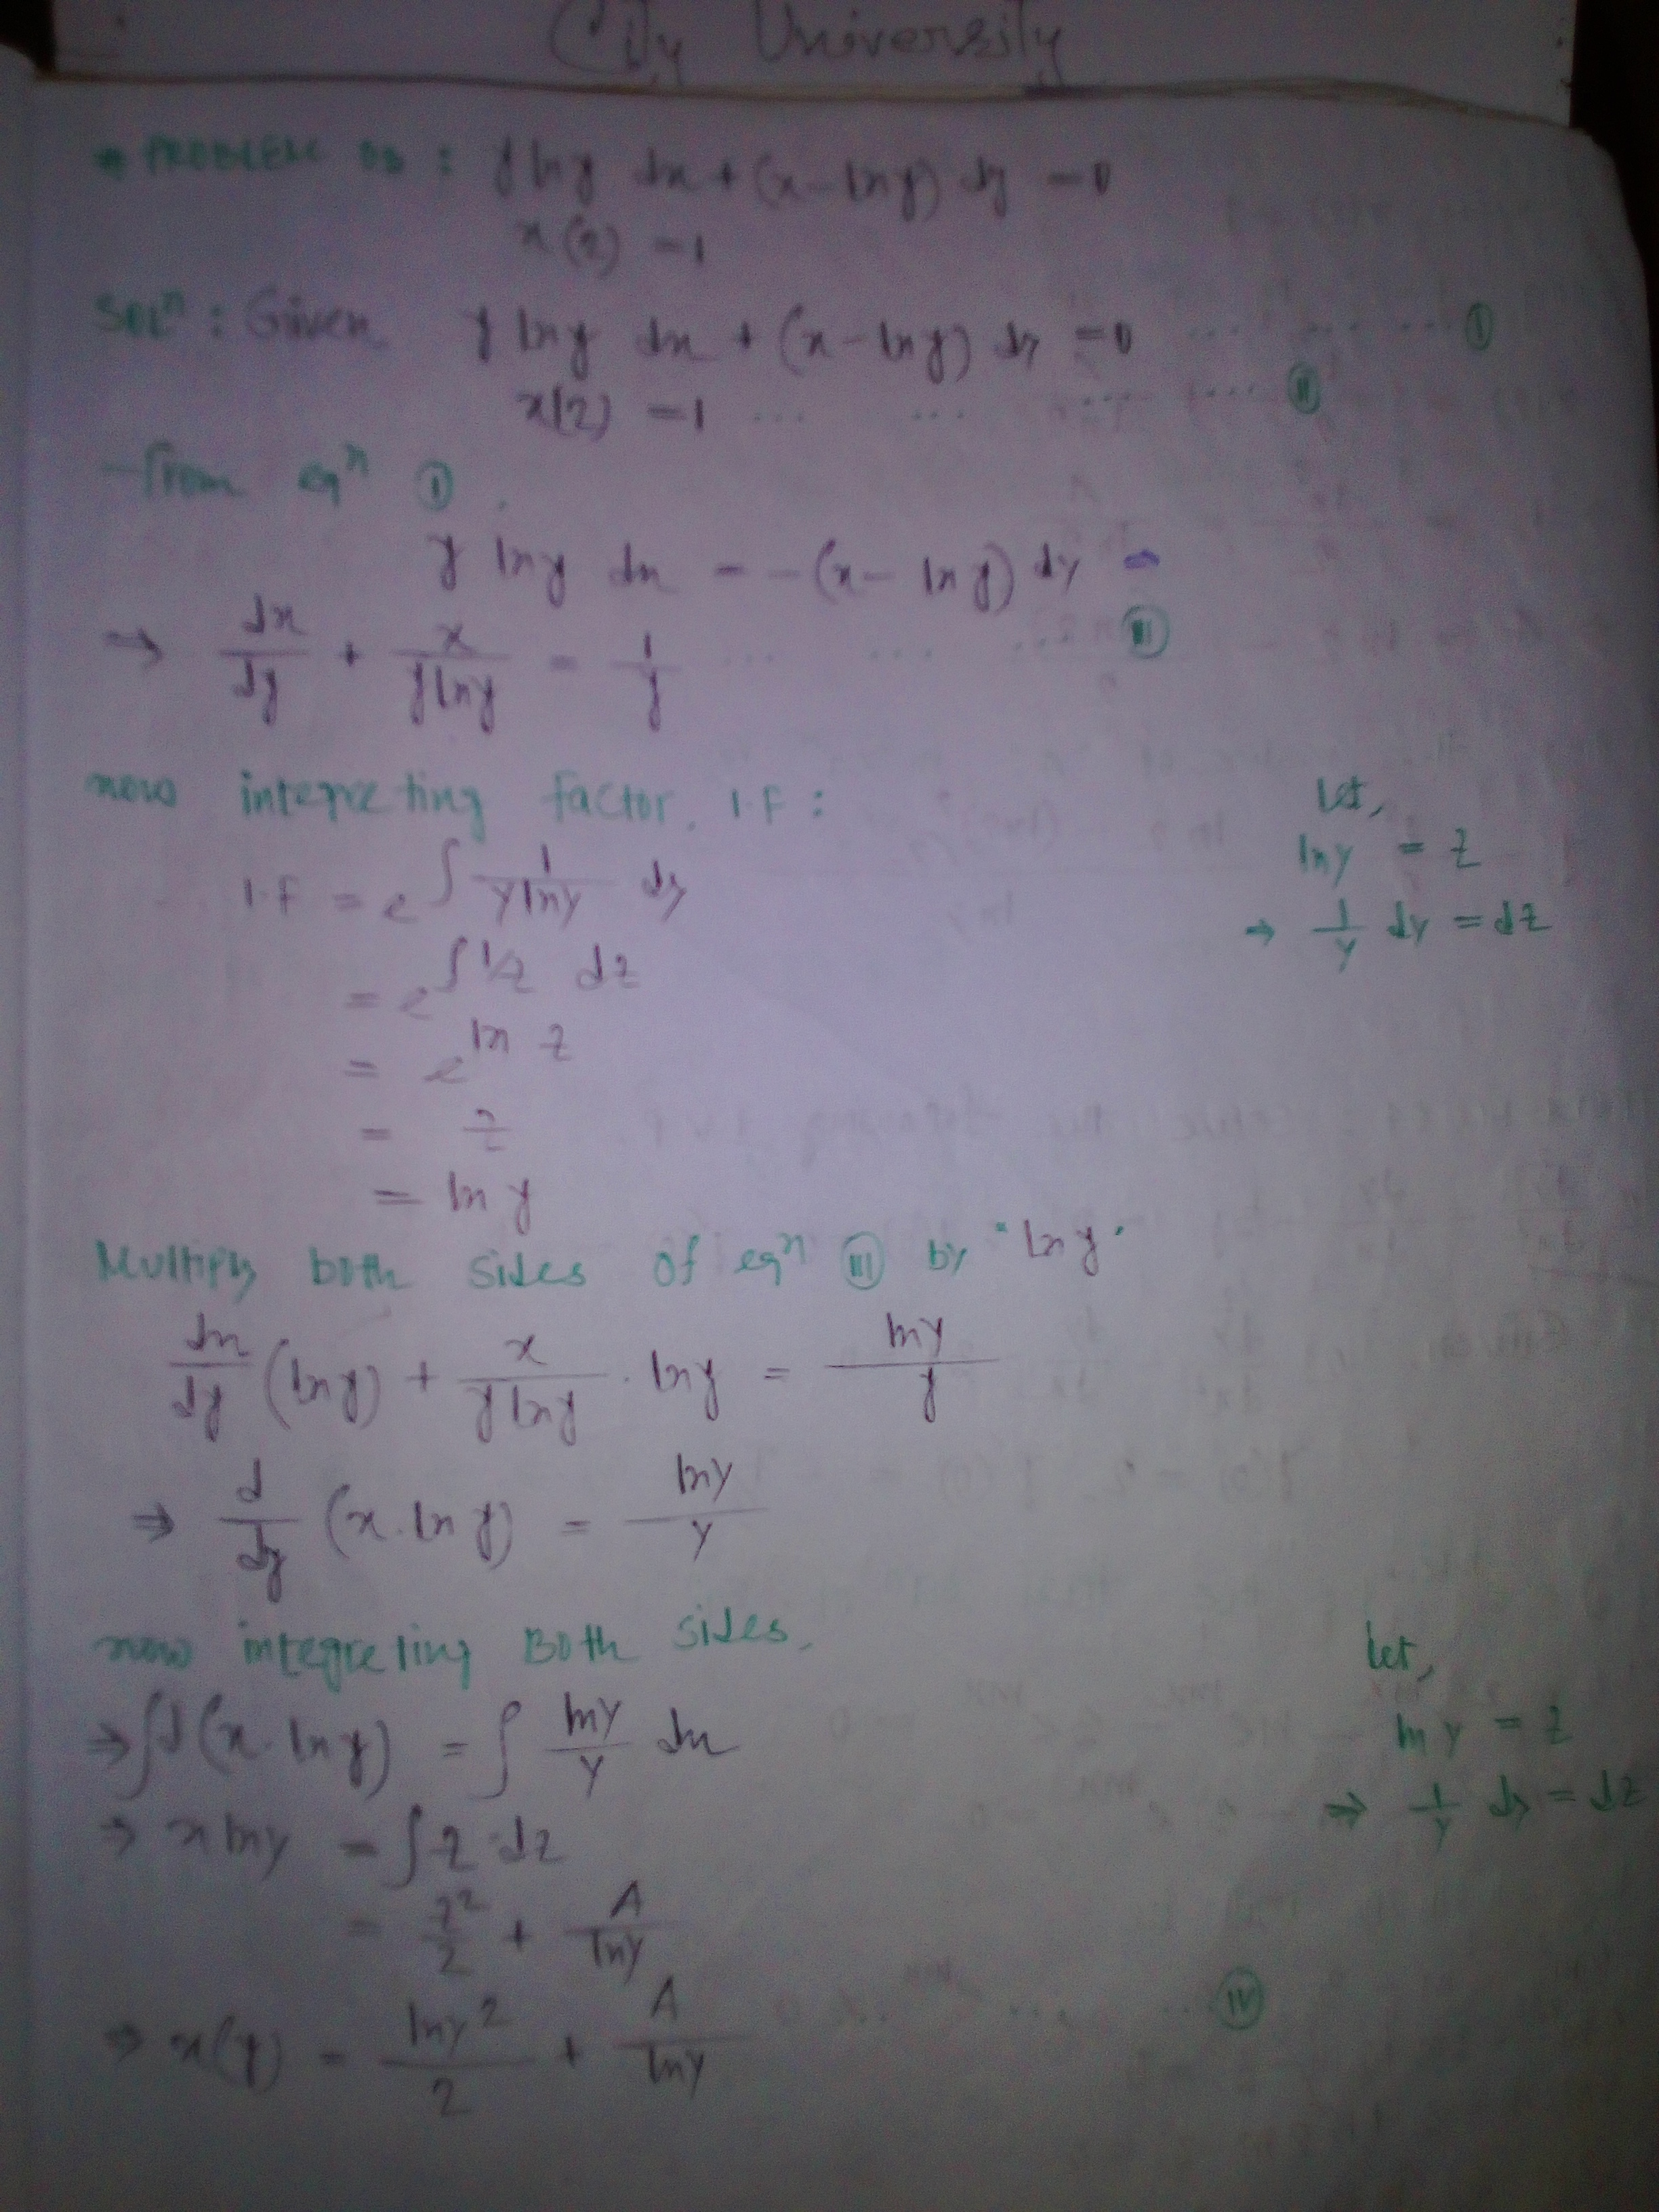 City University
* PROBLEM : y ln y dx + (x - ln y) dy = 0
x(2) = 1
Solⁿ : Given y ln y dx + (x - ln y) dy = 0 ... ... ... (I)
x(2) = 1 ... ... ... ... (II)
From eqⁿ (I).
y ln y dx = -(x - ln y) dy
⇒ dx/dy + x/(y ln y) = 1/y ... ... ... (III)
now integreting factor, I.F :
I.F = e^∫ 1/(y ln y) dy
= e^∫ 1/z dz
= e^ln z
= z
= ln y
Let,
ln y = z
⇒ 1/y dy = dz
Multiply both sides of eqⁿ (III) by "ln y"
dx/dy (ln y) + x/(y ln y) . ln y = ln y/y
⇒ d/dy (x. ln y) = ln y/y
now integreting Both sides,
⇒ ∫d(x. ln y) = ∫ ln y/y dx
⇒ x ln y = ∫ z dz
= z²/2 + A/ln y
⇒ x(y) = ln y²/2 + A/ln y ... ... (IV)
Let,
ln y = z
⇒ 1/y dy = dz